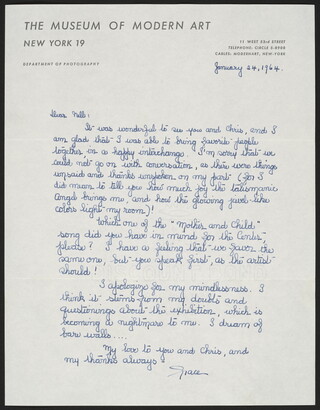 THE MUSEUM OF MODERN ART
NEW YORK 19
11 WEST 53rd STREET
TELEPHONE: CIRCLE 5-8900
CABLES: MODERNART, NEW-YORK
DEPARTMENT OF PHOTOGRAPHY
January 24, 1964.
Dear Nell:
It was wonderful to see you and Chris, and I
am glad that I was able to bring favorite people
together in a happy interchange. I'm sorry that we
could not go on with conversation, as there were things
unsaid and thanks unspoken on my part (for I
did mean to tell you how much joy the talismanic
angel brings me, and how the glowing jewel-like
colors light my room)!
Which one of the "Mother and Child"
song did you have in mind for the Center
please? I have a feeling that we favor the
same one, but you speak first, as the artist
should!
I apologize for my mindlessness. I
think it stems from my doubts and
questionings about the exhibition, which is
becoming a nightmare to me. I dream of
bare walls....
My love to you and Chris, and
my thanks always
Grace